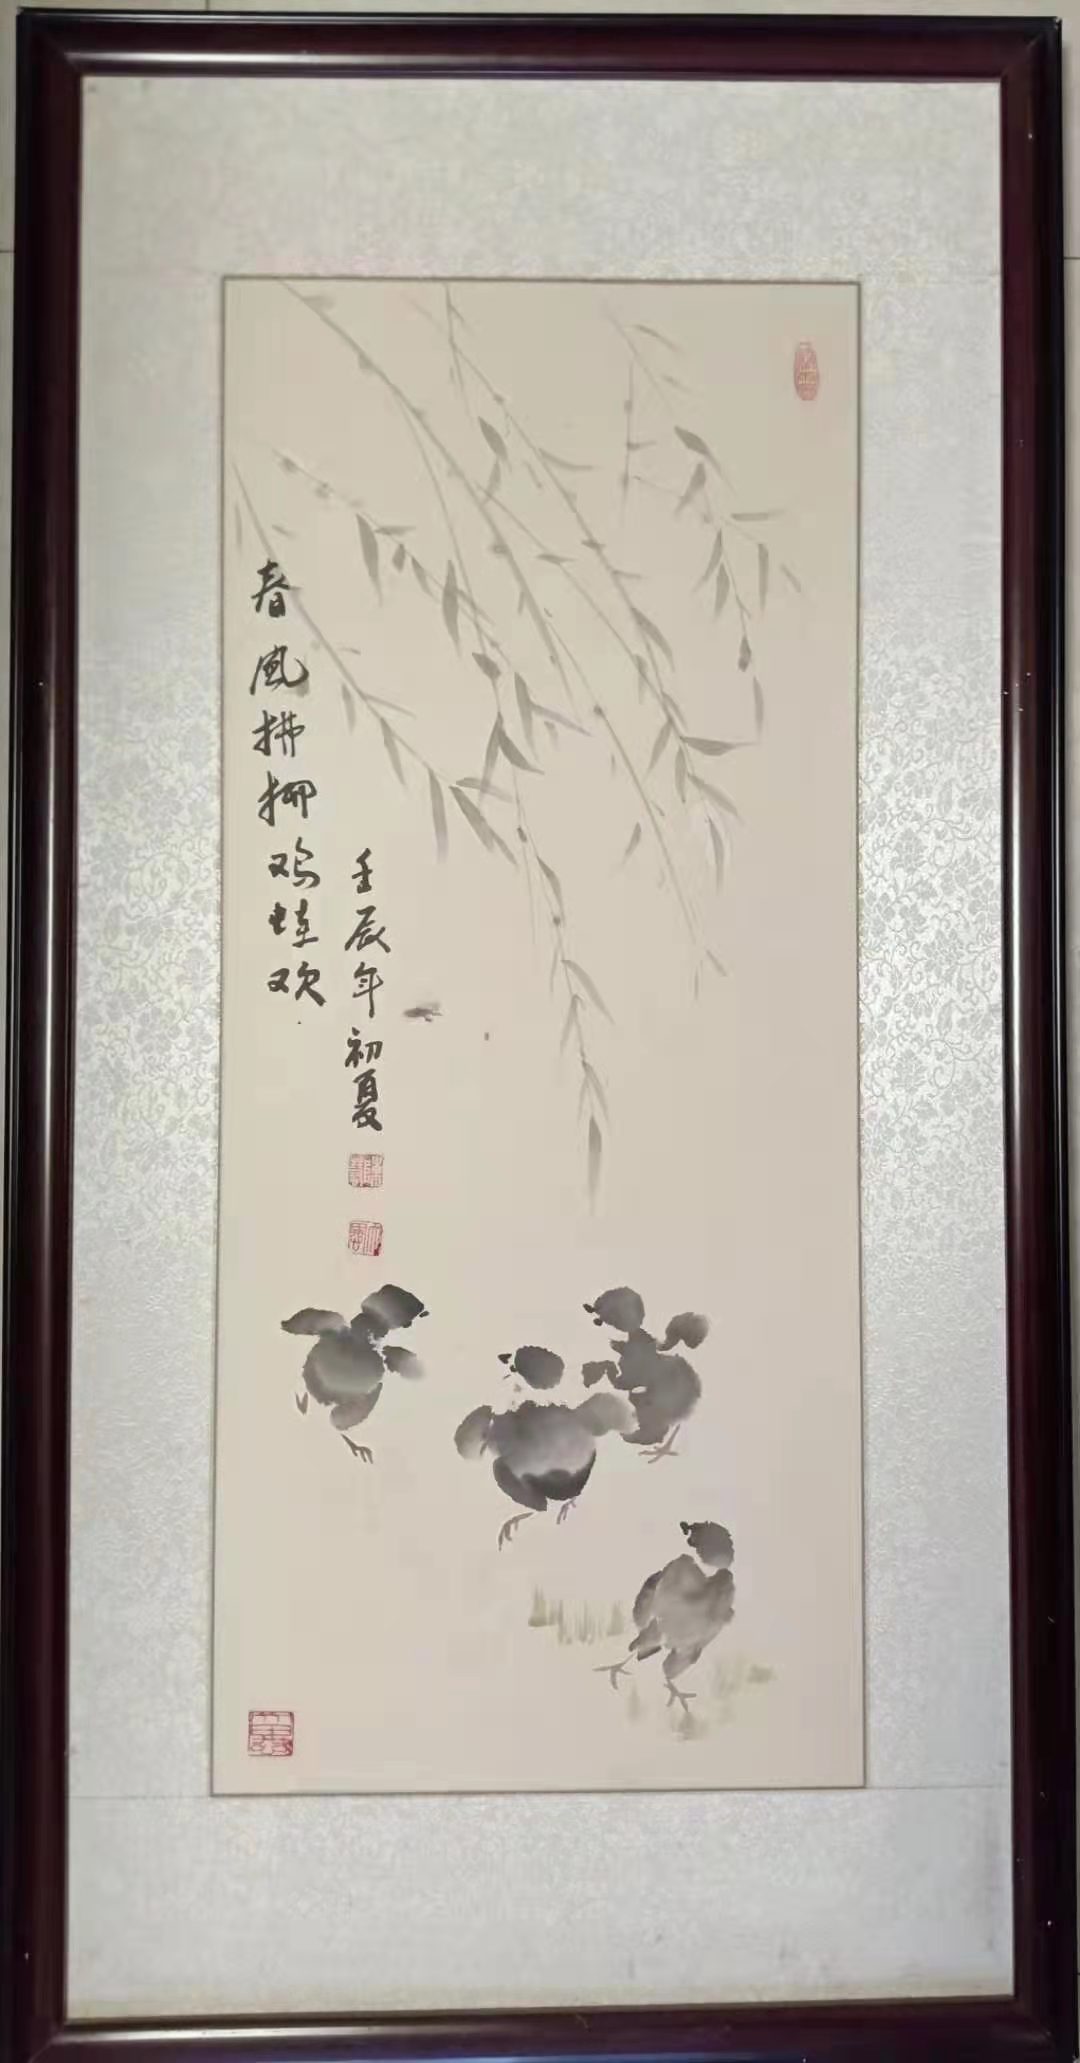 春風拂柳鸡蛙欢
壬辰年初夏